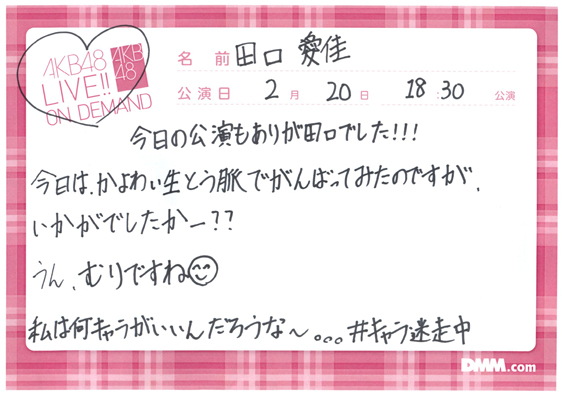 AKB48
LIVE!!
ON DEMAND
AKB
48
名前 田口 愛佳
公演日 2月 20日 18:30 公演
今日の公演もありが田口でした!!!
今日は、かよわい生とう脈でがんばってみたのですが、
いかがでしたかー??
うん、むりですね
私は何キャラがいいんだろうな〜。。。#キャラ迷走中
DMM.com